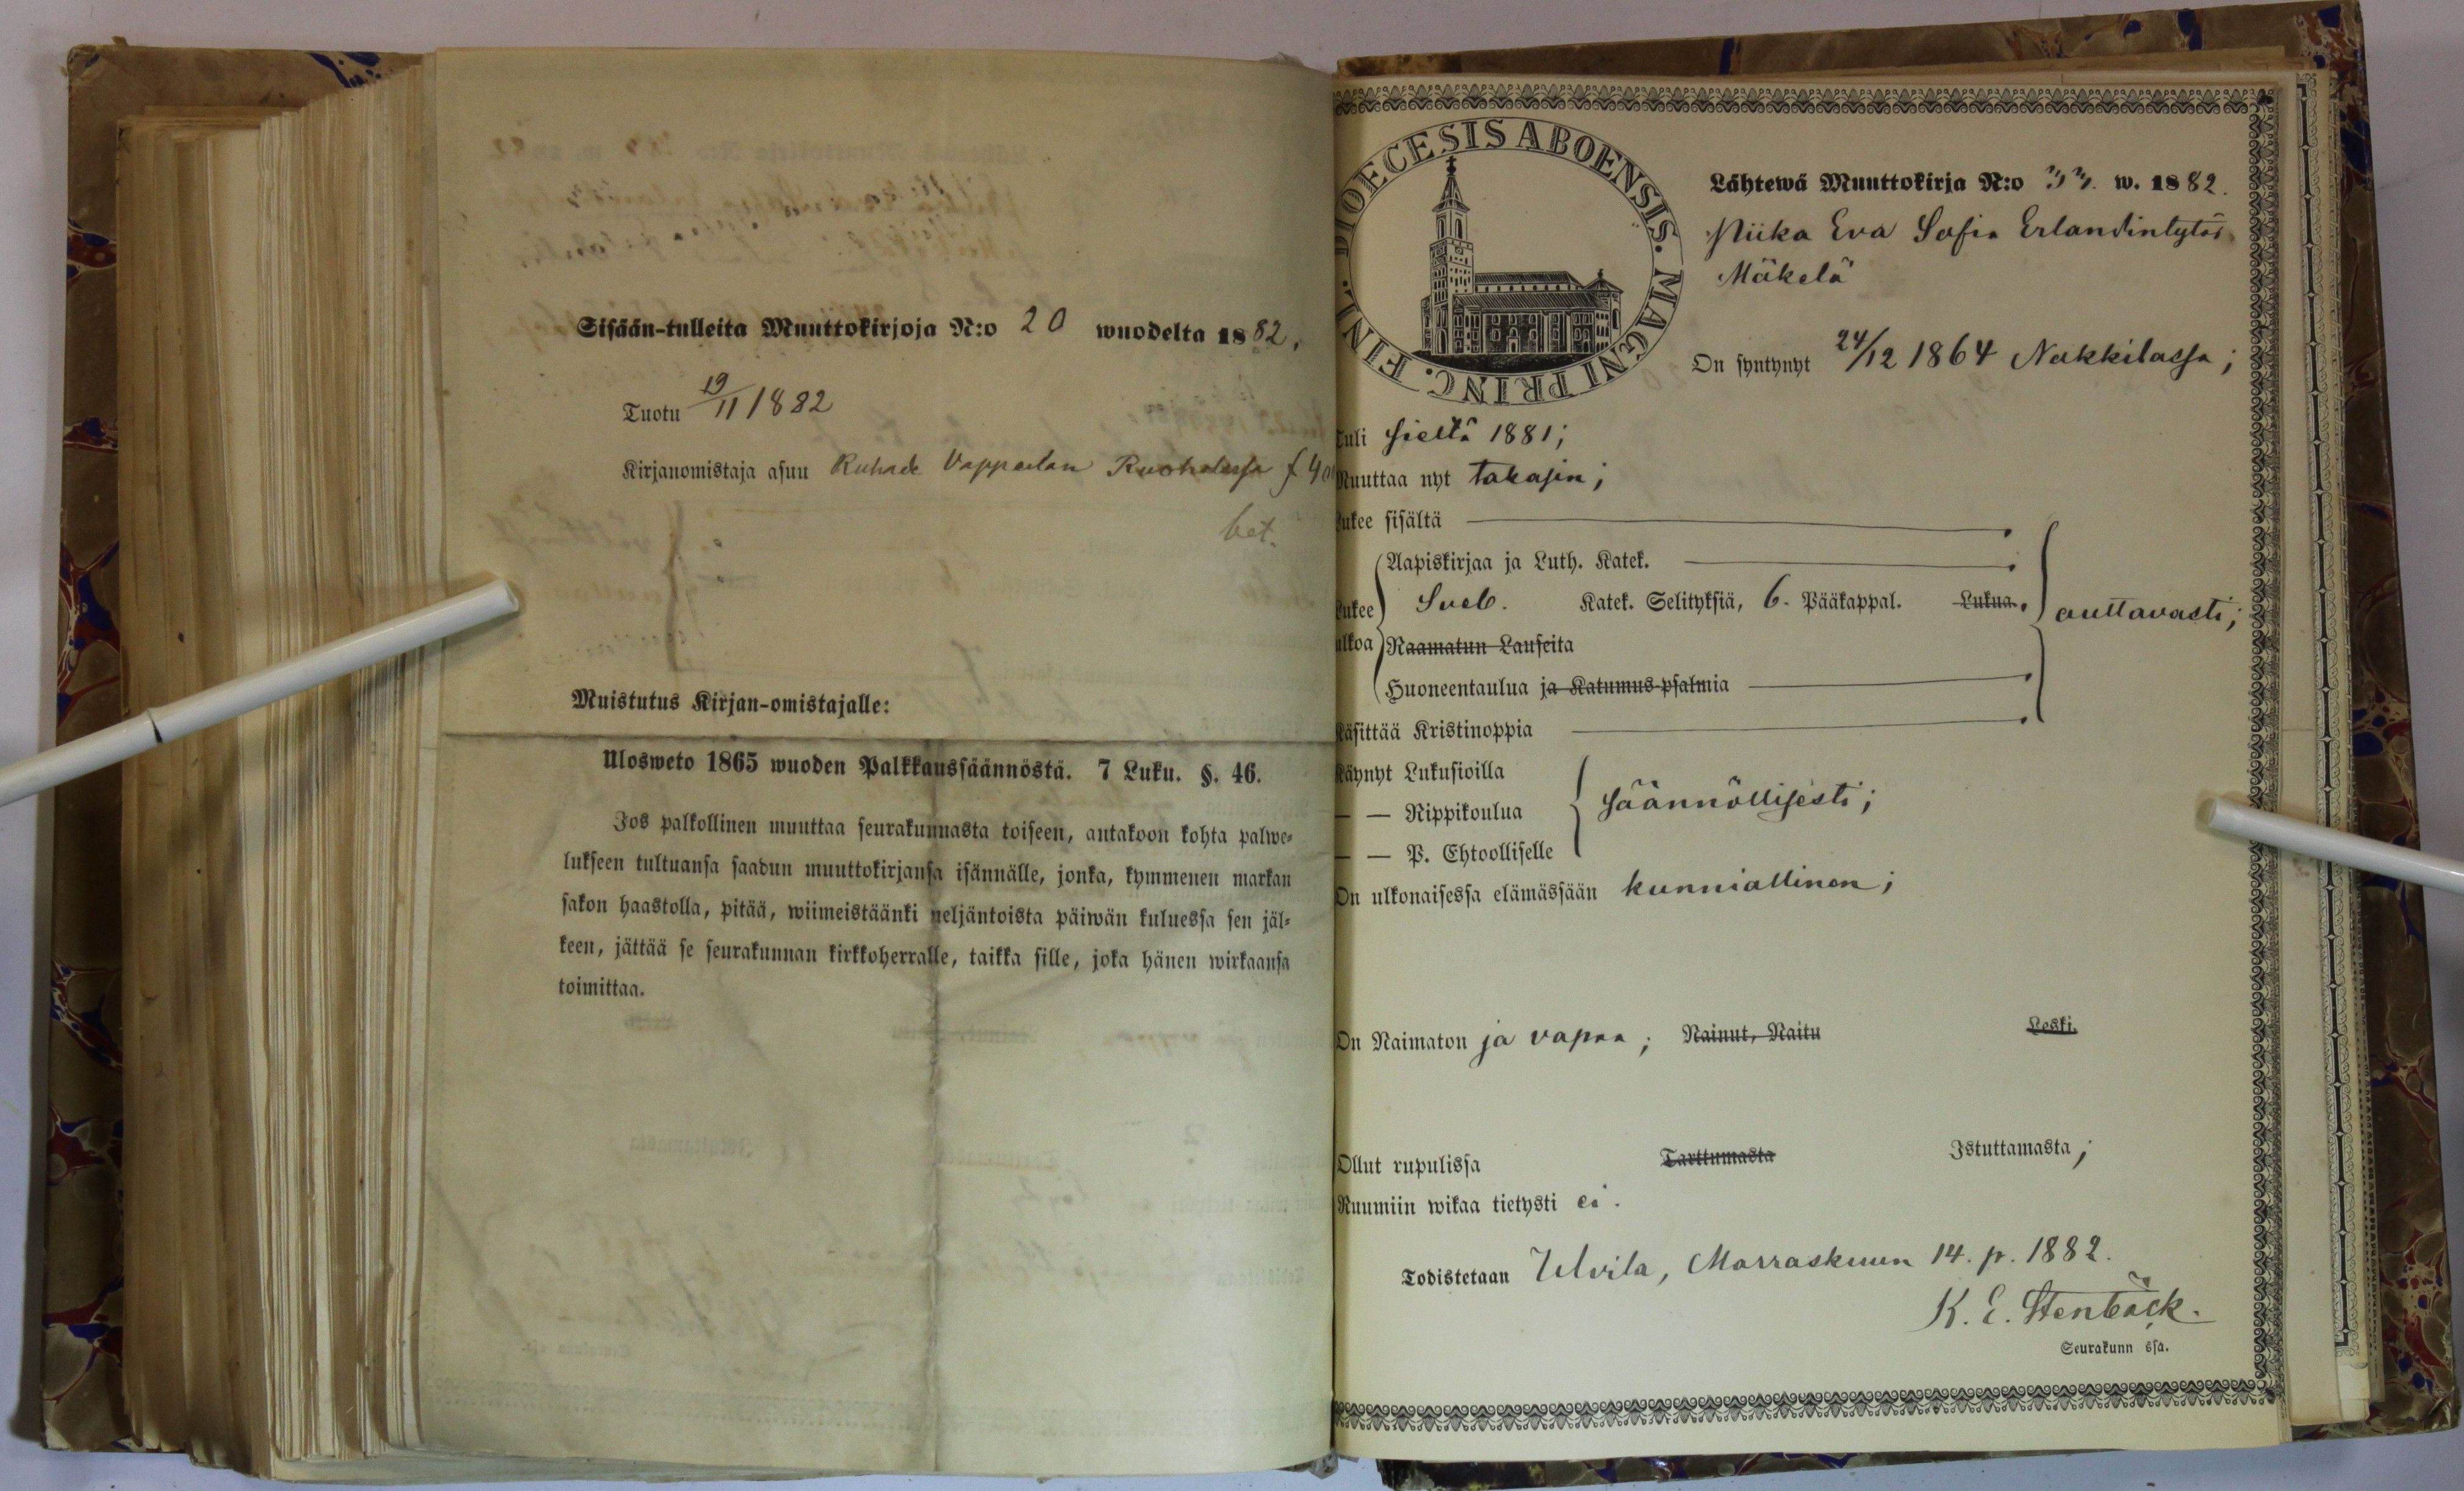 Sisään-tulleita Muuttokirjoja N:o 20 wuodelta 1882,
Tuotu 19/11 1882
Kirjanomistaja asuu
bet.
Muistutus Kirjan-omistajalle:
Ulosweto 1865 wuoden Palkkaussäännöstä. 7 Luku. §. 46.
Jos palkollinen muuttaa seurakunnasta toiseen, antakoon kohta palwe-
lukseen tultuansa saadun muuttokirjansa isännälle, jonka, kymmenen markan
sakon haastolla, pitää, wiimeistäänki neljäntoista päiwän kuluessa sen jäl-
keen, jättää se seurakunnan kirkkoherralle, taikka sille, joka hänen wirkaansa
toimittaa.
DIOECESIS ABOENSIS. MAGNI PRINC. FINL.
Lähtewä Muuttokirja N:o w. 1882.
Piika Eva Sofia Erlandintytär
Mäkelä
On syntynyt 24/12 1864 Nakkilassa;
Tuli sieltä 1881;
Muuttaa nyt takasin;
Lukee sisältä
Aapiskirjaa ja Luth. Katek.
Lukee Sveb. Katek. Selityksiä, 6. Pääkappal. Lukua. auttavasti;
ulkoa Raamatun Lauseita
Huoneentaulua ja Katumus-psalmia
Käsittää Kristinoppia
Käynyt Lukusioilla
— — Rippikoulua säännöllisesti;
— — P. Ehtoolliselle
On ulkonaisessa elämässään kunniallinen;
On Naimaton ja vapaa; Nainut, Naitu Leski.
Ollut rupulissa Tarttumasta Istuttamasta;
Ruumiin wikaa tietysti ei.
Todistetaan Ulvila, Marraskuun 14. p. 1882.
K. E. Stenbäck.
Seurakunn ssa.